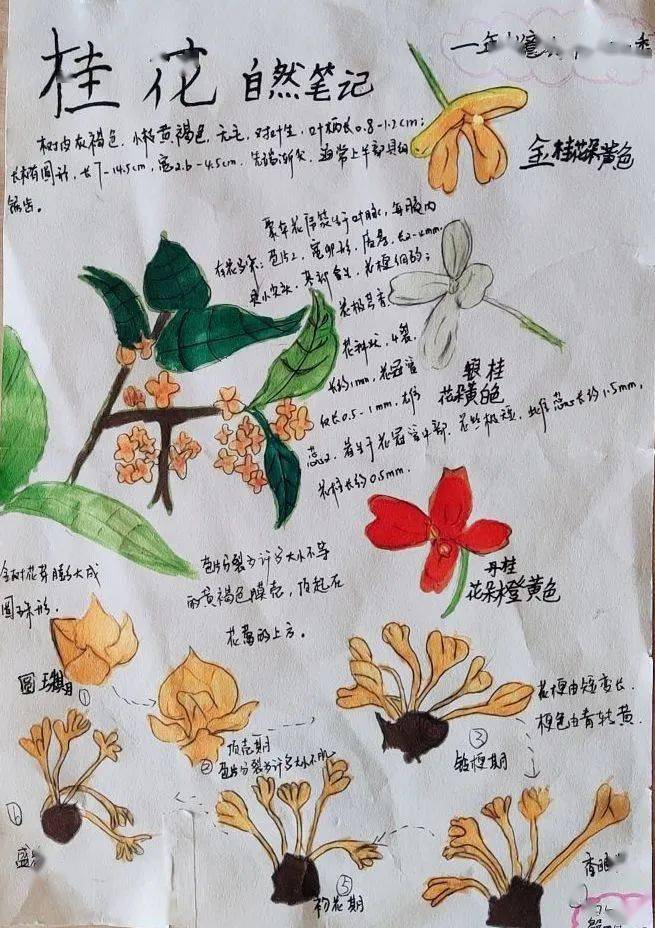 桂花 自然笔记
树皮灰褐色,小枝黄褐色,无毛,对叶生,叶柄长0.8-1.2cm;
长椭圆形,长7-14.5cm,宽2.6-4.5cm,先端渐尖,通常上半部具细
锯齿。
金桂花朵黄色
聚伞花序簇生于叶腋,每腋内
有花多朵;苞片上,宽卵形,质厚,长2-4mm,
具小尖头,基部合生,花梗细弱;
花极芳香,
花4裂,
长约1mm,花冠管
仅长0.5-1mm,雄
蕊2,着生于花冠管中部,花丝极短,雌蕊长约1.5mm,
花柱长约0.5mm.
银桂
花朵黄白色
丹桂
花朵橙黄色
全树花芽膨大成
圆球形.
苞片分裂多许多大小不等
的黄褐色膜壳,顶起石
花蕾的上方。
圆珠期
①
②
顶壳期
苞片分裂多许多大小不
③
铃梗期
花梗由短变长.
梗色由青转黄.
香眼
⑤
初花期
⑥
盛